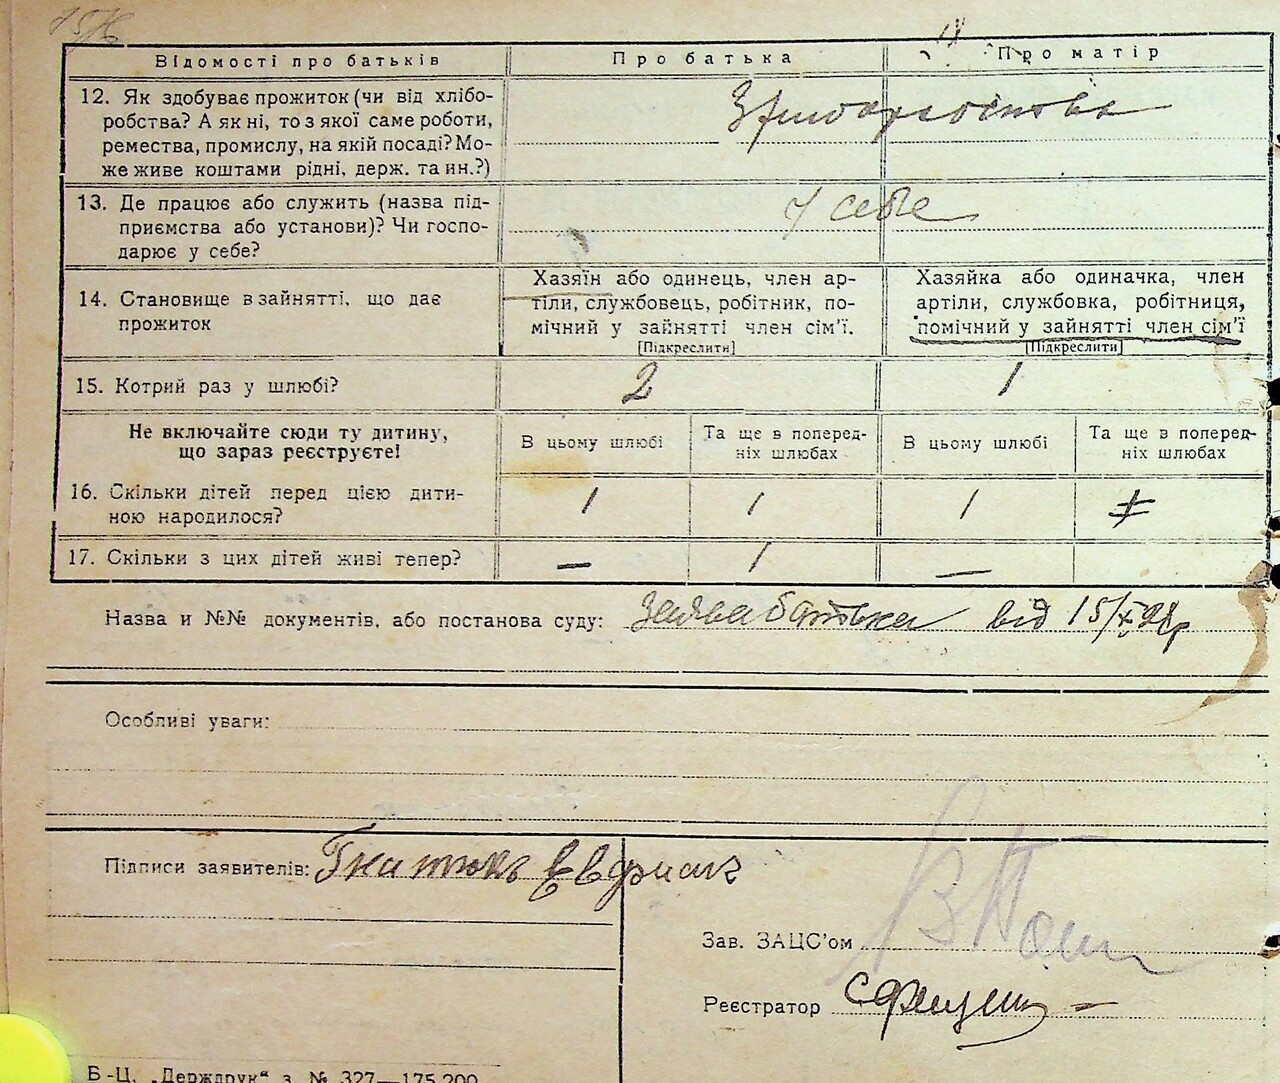 Відомості про батьків
Про батька
Про матір
12. Як здобуває прожиток (чи від хлібо-
робства? А як ні, то з якої саме роботи,
ремества, промислу, на якій посаді? Мо-
же живе коштами рідні, держ. та ин.?)
13. Де працює або служить (назва під-
приємства або установи)? Чи госпо-
дарює у себе?
У себе
14. Становище в зайнятті, що дає
прожиток
Хазяїн або одинець, член ар-
тіли, службовець, робітник, по-
мічний у зайнятті член сім'ї.
[Підкреслити]
Хазяйка або одиначка, член
артіли, службовка, робітниця,
помічний у зайнятті член сім'ї
[Підкреслити]
15. Котрий раз у шлюбі?
2
1
Не включайте сюди ту дитину,
що зараз реєструєте!
В цьому шлюбі
Та ще в поперед-
ніх шлюбах
В цьому шлюбі
Та ще в поперед-
ніх шлюбах
16. Скільки дітей перед цією дити-
ною народилося?
1
1
1
17. Скільки з цих дітей живі тепер?
—
1
—
Назва и №№ документів, або постанова суду: Заява батька від 15/X 28р
Особливі уваги:
Підписи заявителів: Гнатюкъ
Зав. ЗАЦС'ом
Реєстратор
Б-Ц. „Держдрук“ з. № 327—175.200